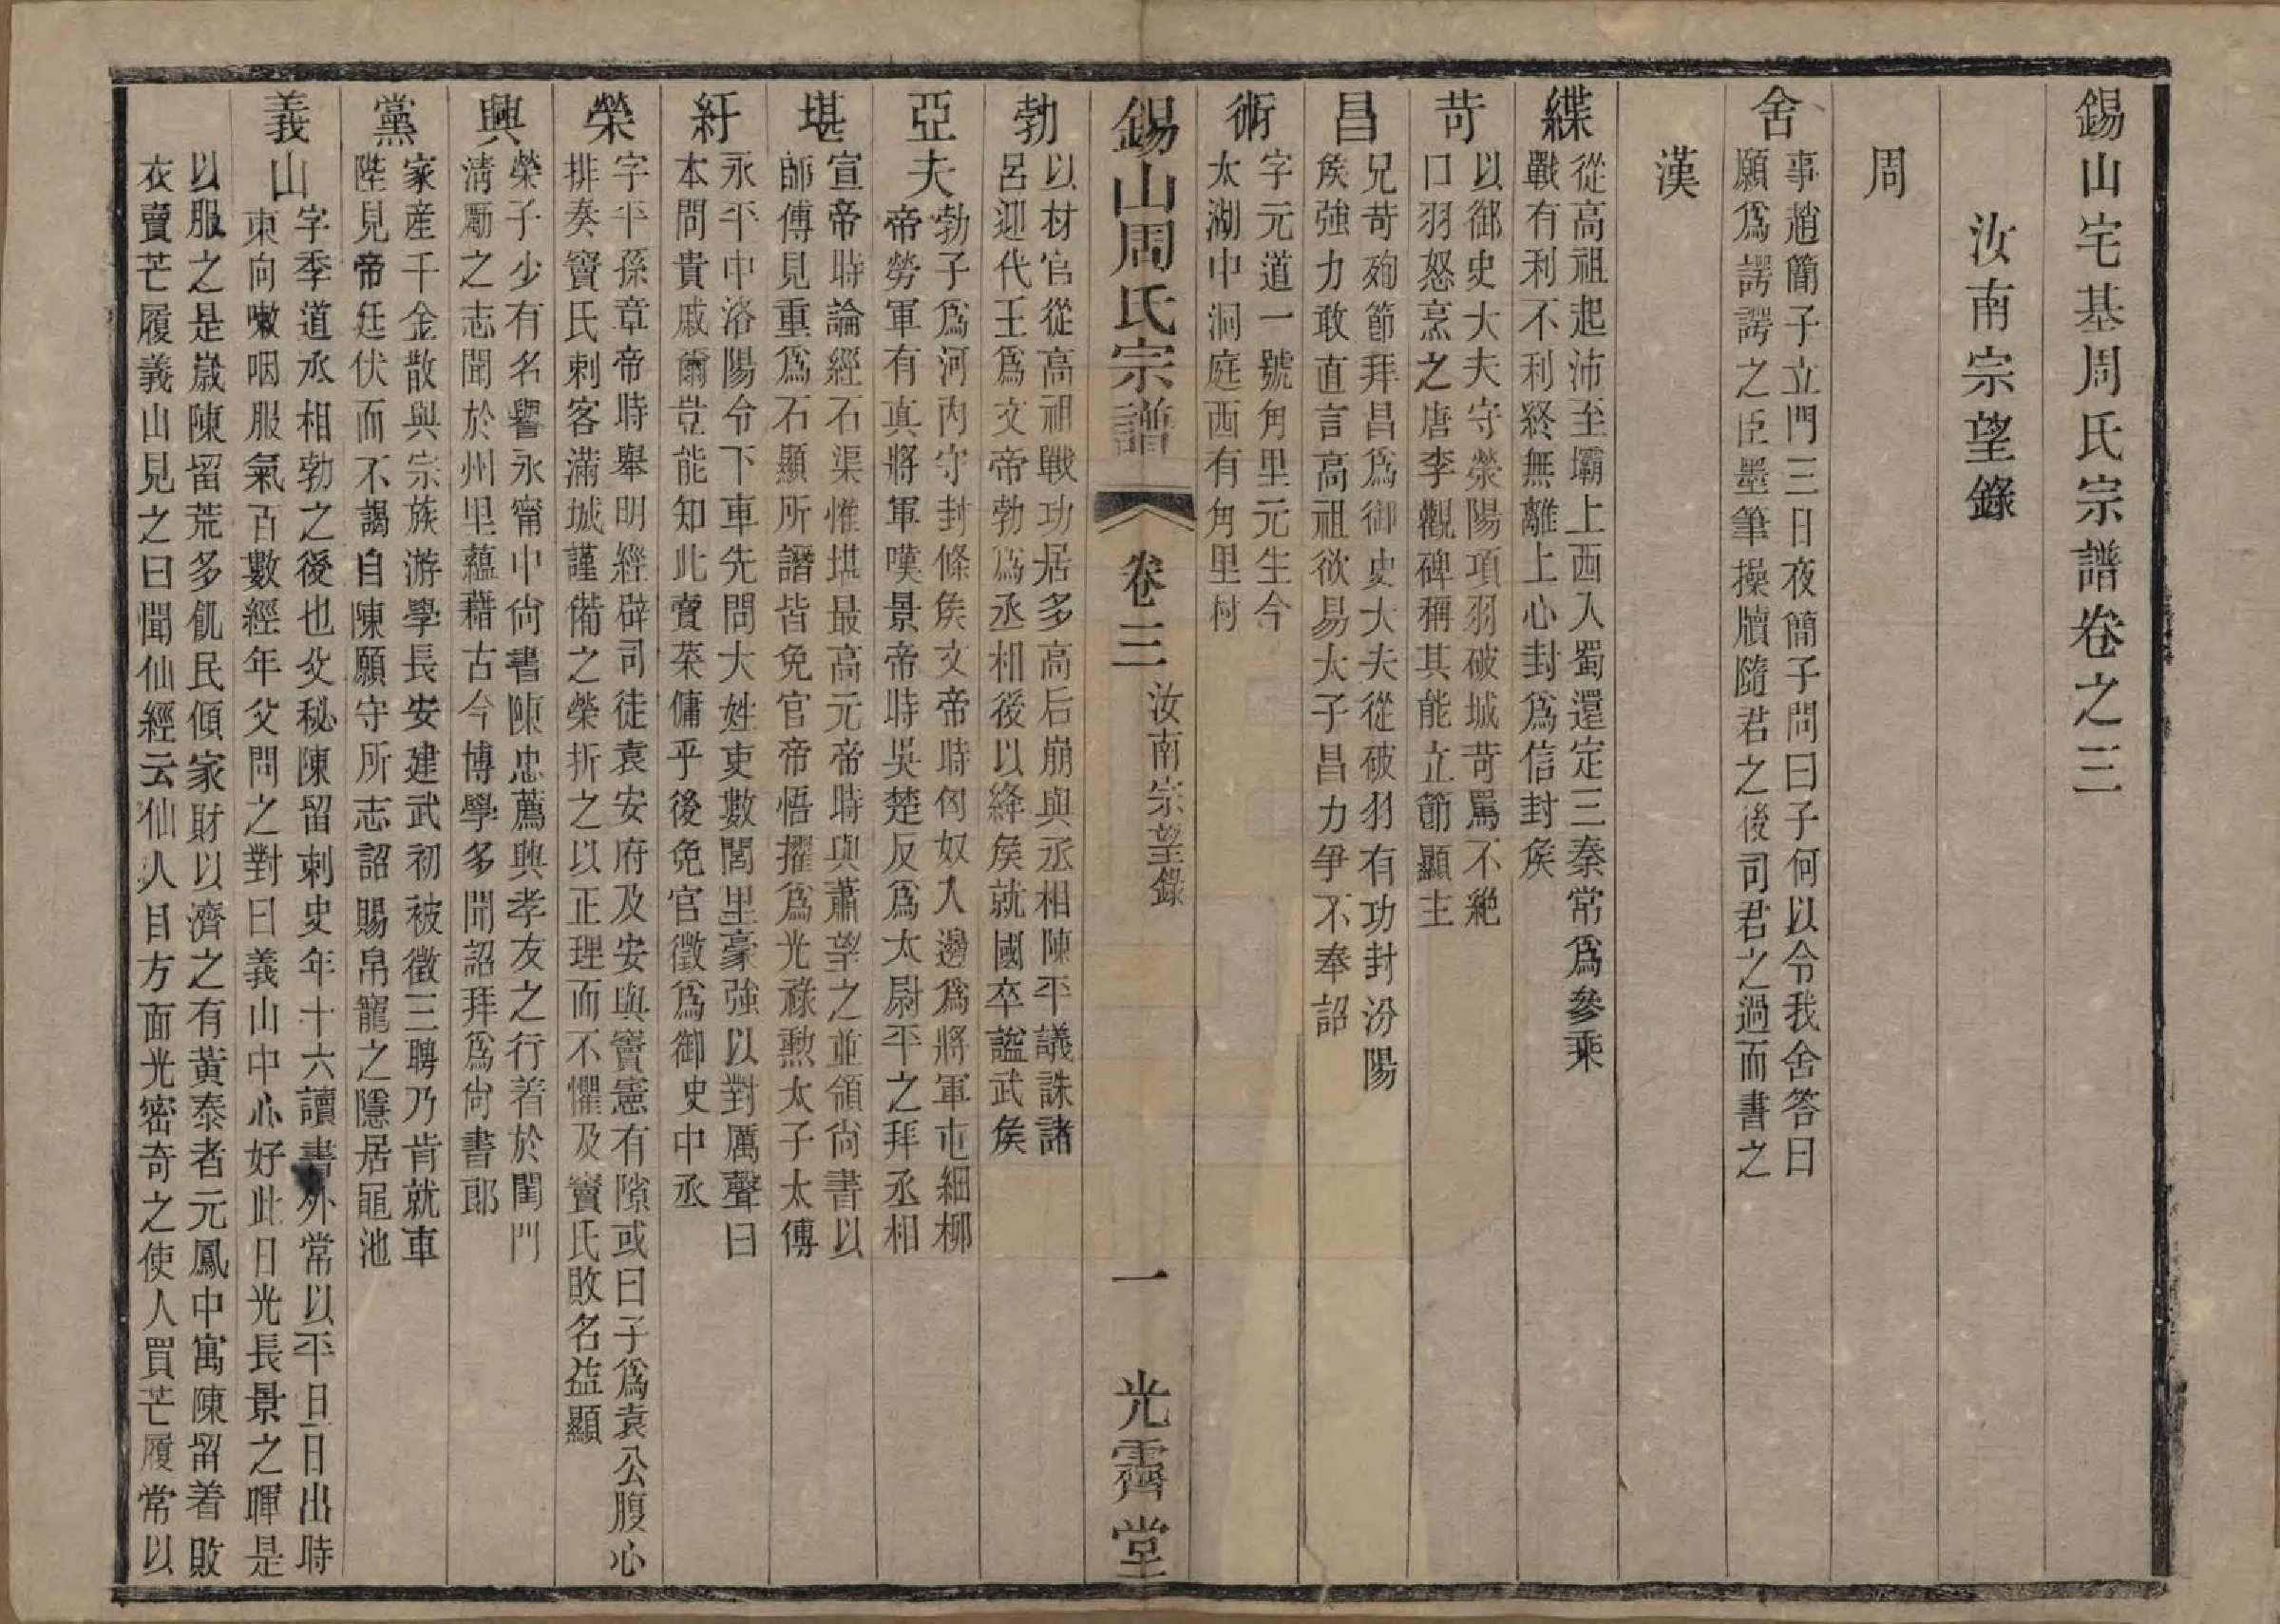 錫山宅基周氏宗譜卷之三
汝南宗望錄
周
舍
事趙簡子立門三日夜簡子問曰子何以令我舍答曰
願爲諤諤之臣墨筆操牘隨君之後司君之過而書之
漢
緤
從高祖起沛至壩上西入蜀還定三秦常爲參乘
戰有利不利終無離上心封爲信封矦
苛
以御史大夫守滎陽項羽破城苛罵不絶
口羽怒烹之唐李觀碑稱其能立節顯主
昌
兄苛殉節拜昌爲御史大夫從破羽有功封汾陽
矦強力敢直言高祖欲易太子昌力爭不奉詔
術
字元道一號角里元生今
太湖中洞庭西有角里村
錫山周氏宗譜 卷三 汝南宗望錄 一 光霽堂
勃
以材官從高祖戰功居多高后崩與丞相陳平議誅諸
呂迎代王爲文帝勃爲丞相後以絳矦就國卒謚武矦
亞夫
勃子爲河內守封條矦文帝時匈奴入邊爲將軍屯細柳
帝勞軍有真將軍嘆景帝時吳楚反爲太尉平之拜丞相
堪
宣帝時論經石渠惟堪最高元帝時與蕭望之並領尙書以
師傅見重爲石顯所譖皆免官帝悟擢爲光祿勲太子太傅
紆
永平中洛陽令下車先問大姓吏數閭里豪強以對厲聲曰
本問貴戚爾豈能知此賣菜傭乎後免官徵爲御史中丞
榮
字平孫章帝時舉明經辟司徒袁安府及安與竇憲有隙或曰子爲袁公腹心
排奏竇氏刺客滿城謹備之榮折之以正理而不懼及竇氏敗名益顯
興
榮子少有名譽永甯中尙書陳忠薦興孝友之行着於閨門
淸勵之志聞於州里蘊藉古今博學多聞詔拜爲尙書郞
黨
家產千金散與宗族游學長安建武初被徵三聘乃肯就車
陛見帝廷伏而不謁自陳願守所志詔賜帛寵之隱居黽池
義山
字季道丞相勃之後也父秘陳留刺史年十六讀書外常以平旦日出時
東向嗽咽服氣百數經年父問之對曰義山中心好此日光長景之暉是
以服之是歲陳留荒多飢民傾家財以濟之有黃泰者元鳳中寓陳留着敗
衣賣芒履義山見之曰聞仙經云仙人目方面光密奇之使人買芒履常以